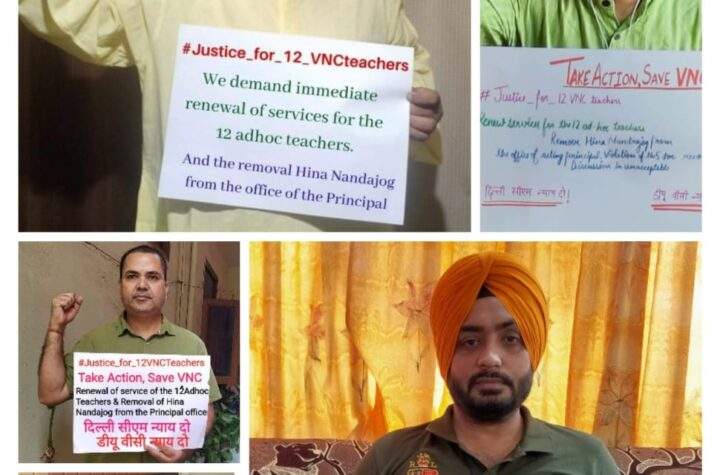 #Justice_for_12_VNCteachers
We demand immediate
renewal of services for the
12 adhoc teachers.
And the removal Hina Nandajog
from the office of the Principal
TAKE ACTION, SAVE VNC
#Justice_for_12 VNC teachers
Renew services for the 12 ad-hoc teachers
Remove Hina Nandajog from
the office of acting principal. Violation of
is unacceptable
दिल्ली सीएम न्याय दो!
डीयू वीसी न्याय
#Justice_for_12VNCTeachers
Take Action, Save VNC
Renewal of service of the 12Adhoc
Teachers & Removal of Hina
Nandajog from the Principal office
दिल्ली सीएम न्याय दो
डीयू वीसी न्याय दो